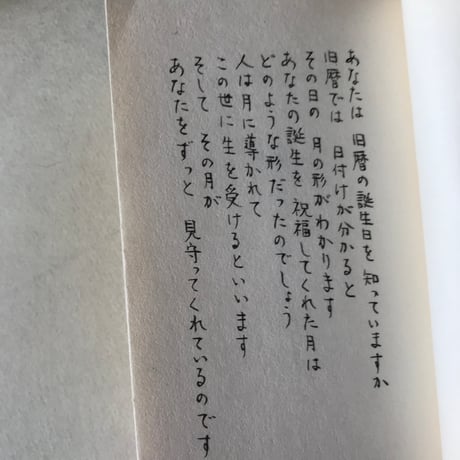 あなたは 旧暦の誕生日を 知っていますか
旧暦では 日付けが分かると
その日の 月の形がわかります
あなたの誕生を 祝福してくれた月は
どのような形だったのでしょう
人は月に導かれて
この世に生を受けるといいます
そして その月が
あなたをずっと 見守ってくれているのです